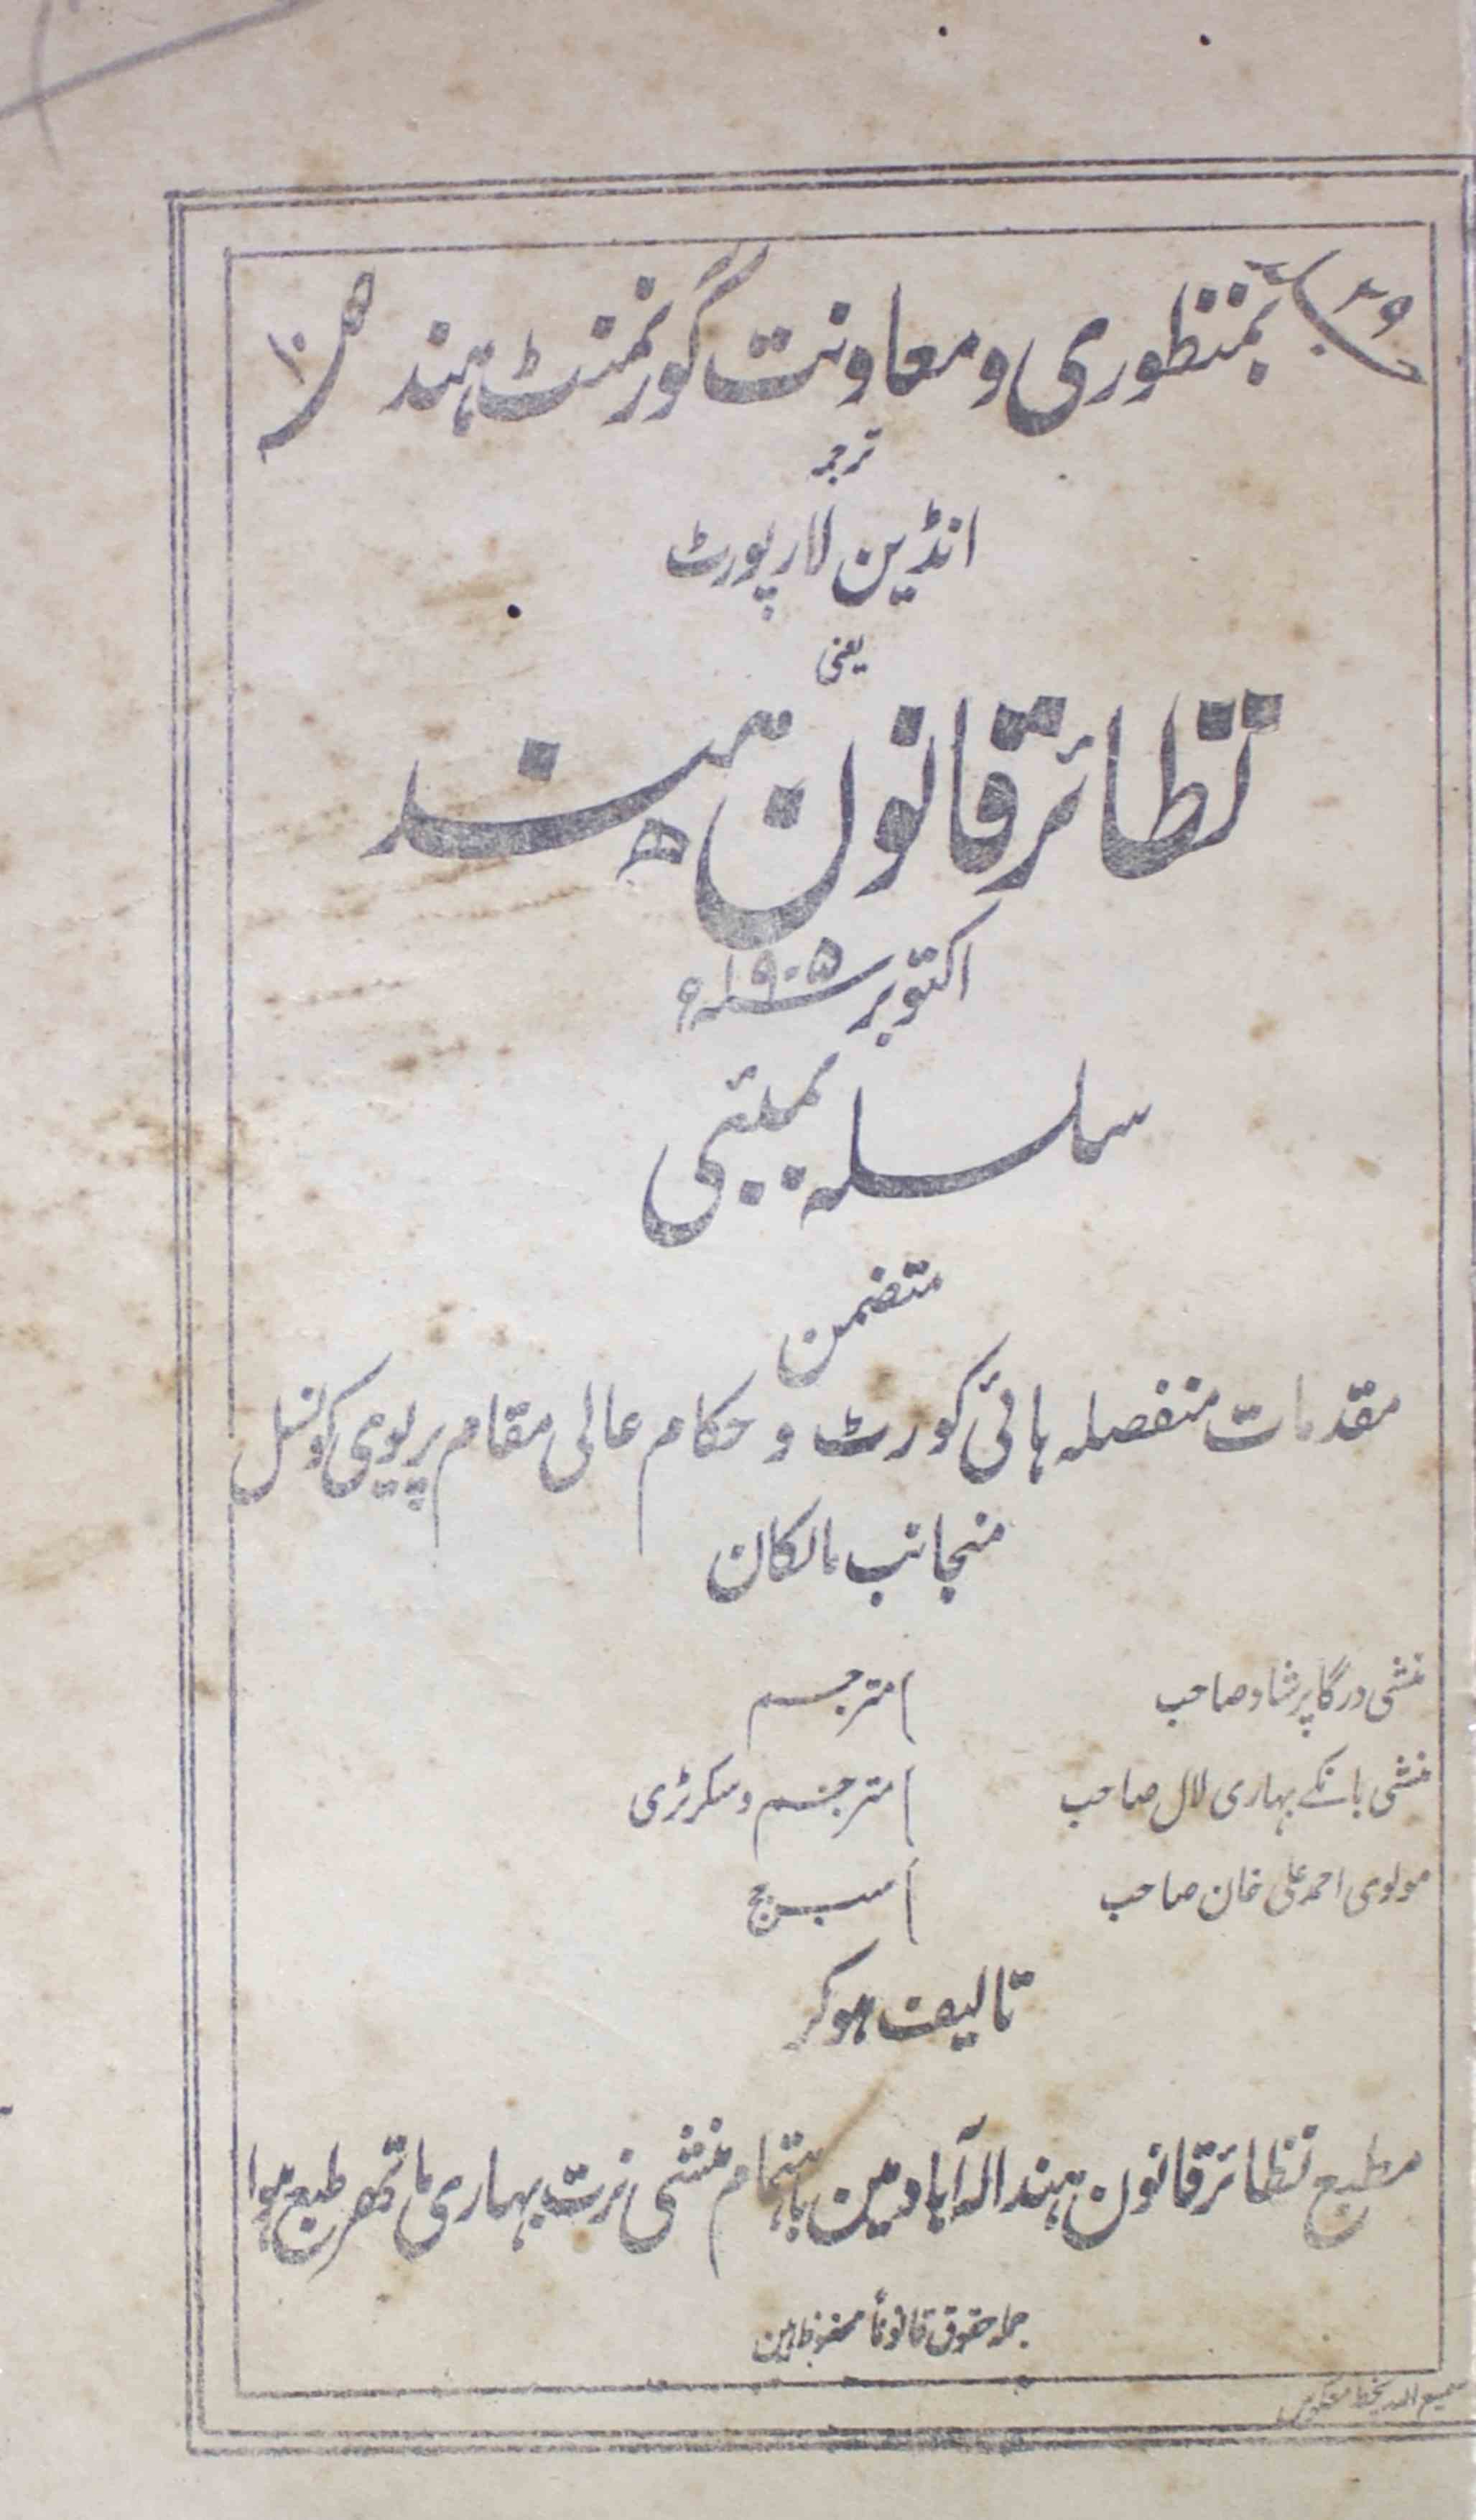 بمنظوری و معاونت گورنمنٹ ہند
ترجمہ
انڈین لا رپورٹ
یعنی
نظائر قانون ہند
اکتوبر ۱۹۰۵ء
سلسلہ بمبئی
متضمن
مقدمات منفصلہ ہائی کورٹ و حکام عالی مقام پریوی کونسل
منجانب مالکان
منشی درگا پرشاد صاحب ) مترجم
منشی بانکے بہاری لال صاحب ) مترجم و سکرٹری
مولوی احمد علی خان صاحب ) سب جج
تالیف ہوکر
مطبع نظائر قانون ہند الہ آباد مین باہتمام منشی نرت بہاری ماتھر طبع ہوا
جملہ حقوق قانوناً محفوظ ہین